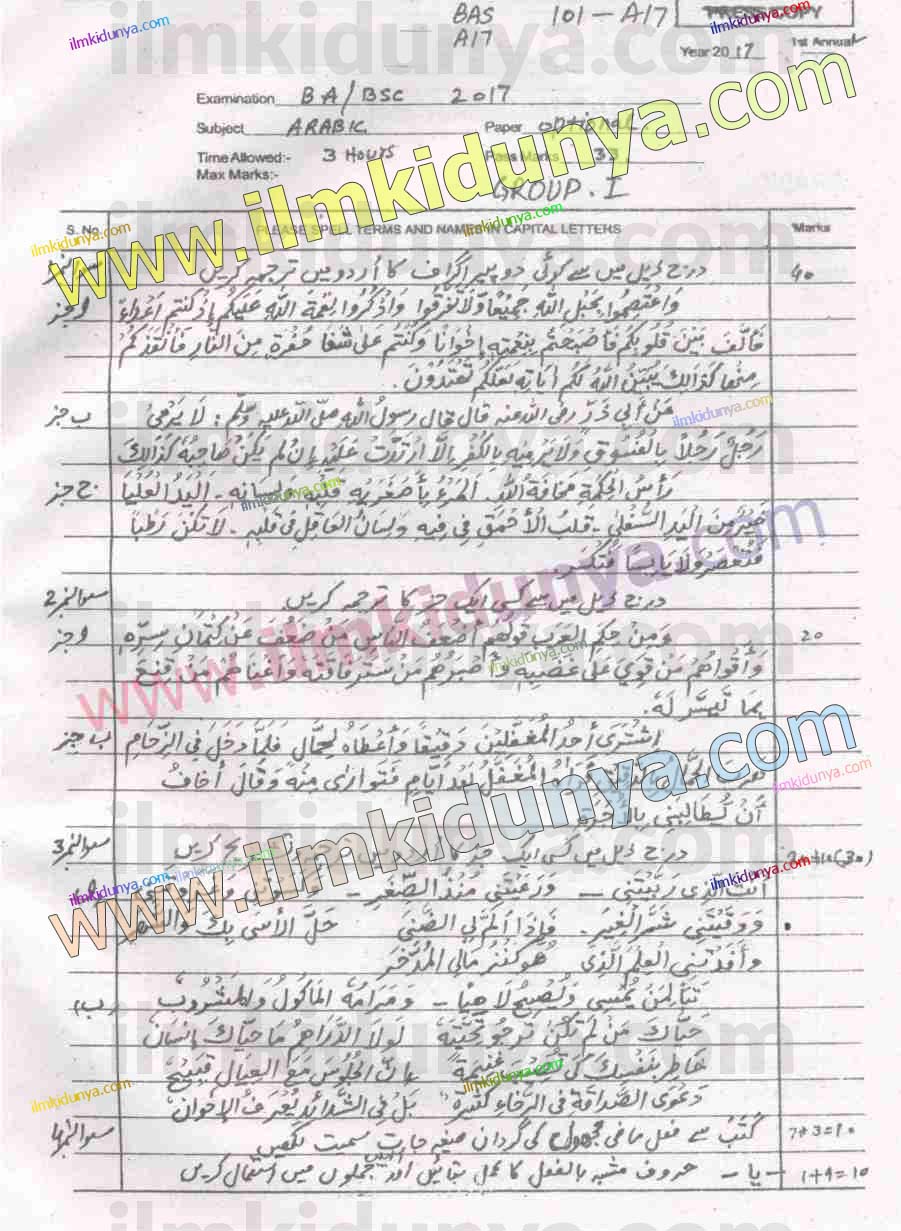 BAS 101-A17 PRESS COPY
A17
Year 2017 1st Annual
Examination BA/BSC 2017
Subject ARABIC Paper optional
Time Allowed:- 3 Hours Pass Marks 33
Max Marks:-
GROUP. I
S. No. PLEASE SPELL TERMS AND NAMES IN CAPITAL LETTERS Marks
درج ذیل میں سے کوئی دو پیراگراف کا اُردو میں ترجمہ کریں 40
وَاعْتَصِمُوا بِحَبْلِ اللهِ جَمِيعًا وَّلَا تَفَرَّقُوا وَاذْكُرُوا نِعْمَةَ اللهِ عَلَيْكُمْ إِذْ كُنتُم أَعْدَاءً
فَأَلَّفَ بَيْنَ قُلُوبِكُم فَأَصْبَحْتُم بِنِعْمَتِهِ إِخْوَانًا وَكُنْتُم عَلىٰ شَفَا حُفْرَةٍ مِنَ النَّارِ فَأَنْقَذَكُمْ
مِنْهَا كَذَالِكَ يُبَيِّنُ اللهُ لَكُم آيَاتِهِ لَعَلَّكُم تَهْتَدُوْنَ.
ب جز عَنْ أَبِي ذَرٍّ رضی اللہ عنہ قال قال رسولُ اللهِ صلی اللہ علیہ وسلّم: لَا يَرْمِىْ
رَجُلٌ رَجُلًا بِالْفُسُوقِ وَلَا يَرْمِيهِ بِالْكُفْرِ إِلَّا ارْتَدَّتْ عَلَيْهِ إِنْ لَم يَكُنْ صَاحِبُهُ كَذَالِكَ
ج جز رَأْسُ الْحِكْمَةِ مَخَافَةُ اللهِ. الْمَرْءُ بِأَصْغَرَيْهِ قَلْبِهِ وَلِسَانِهِ - الْيَدُ الْعُلْيَا
خَيْرٌ مِنَ الْيَدِ السُّفْلىٰ - قَلْبُ الْأَحْمَقِ فِي فِيهِ وَلِسَانُ الْعَاقِلِ فِي قَلْبِهِ - لَا تَكُنْ رَطْبًا
فَتُعْصَرَ وَلَا يَابِسًا فَتُكْسَرَ
سوال نمبر 2 درج ذیل میں سے کسی ایک جز کا ترجمہ کریں
وَمِنْ حِكَمِ الْعَرَبِ قَولُهُم أَضْعَفُ النَّاسِ مَنْ ضَعُفَ عَنْ كِتْمَانِ سِرِّهِ 20
وَأَقْوَاهُمْ مَنْ قَوِيَ عَلىٰ غَضَبِهِ وَأَصْبَرُهُمْ مَنْ سَتَرَ فَاقَتَهُ وَأَغْنَاهُمْ مَنْ قَنِعَ
بِمَا تَيَسَّرَ لَهُ.
ب جز اشْتَرَى أَحَدُ الْمُغَفَّلِيْنَ دَقِيْقًا وَأَعْطَاهُ لِحَمَّالٍ فَلَمَّا دَخَلَ فِي الزِّحَامِ
الْمُغَفَّلُ بَعْدَ أَيَّامٍ فَتَوَارىٰ مِنْهُ وَقَالَ أَخَافُ
أَنْ يُطَالِبَنِي
سوال نمبر 3 درج ذیل میں کسی ایک جز کا
أَنْتَ الَّذِي رَبَّيْتَنِي - وَرَعَيْتَنِي مُنْذُ الصِّغَرِ -
وَوَقَيْتَنِي شَرَّ الْغِيَرِ. فَإِذَا أَلَمَّ بِي الضَّنىٰ حَلَّ الأَسىٰ بِكَ
وَأَفَدْتَنِي الْعِلْمَ الَّذِي هُوَ كَنْزُ مَالِي الْمُدَّخَر
(ب) تَبًّا لِمَنْ يُمْسِي وَيُصْبِحُ لَاهِيًا - وَمَرَامُهُ الْمَأْكُولُ وَالْمَشْرُوبُ
حَيَّاكَ مَنْ لَمْ تَكُنْ تَرْجُو تَحِيَّتَهُ لَولَا الدَّرَاهِمُ مَا حَيَّاكَ إِنْسَانٌ
خَاطِرْ بِنَفْسِكَ كَيْ غَنِيمَةً إِنَّ الْجُلُوسَ مَعَ الْعِيَالِ قَبِيْحٌ
دَعْوَى الصَّدَاقَةِ فِي الرَّخَاءِ كَثِيْرَةٌ بَلْ فِي الشَّدَائِدِ يُعْرَفُ الْإِخْوَانُ
سوال نمبر 4 کَتَبَ سے فعل ماضی مجہول کی گردان صیغہ جات سمیت لکھیں 7+3=10
- یا - حروف مشبہ بالفعل کا عمل بتائیں اور انہیں جملوں میں استعمال کریں 1+9=10
www.ilmkidunya.com
ilmkidunya.com